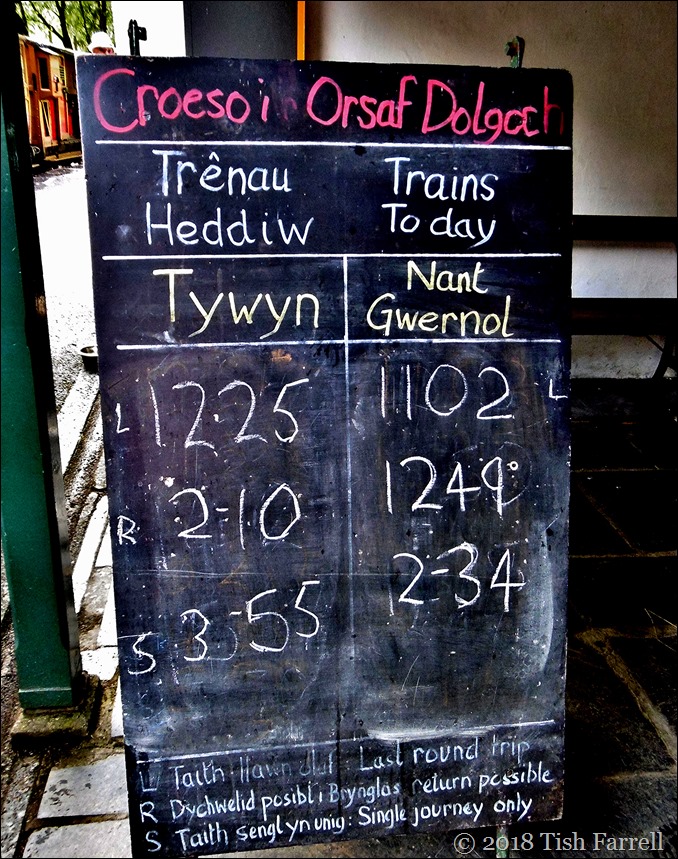 Croeso i Orsaf Dolgoch
Trênau Heddiw
Trains To day
Tywyn
Nant Gwernol
L 12-25
1102 L
R 2-10
1249
S 3-55
2-34
L Taith llawn olaf: Last round trip
R Dychwelid posibl i Brynglas return possible
S Taith sengl yn unig: Single journey only
© 2018 Tish Farrell